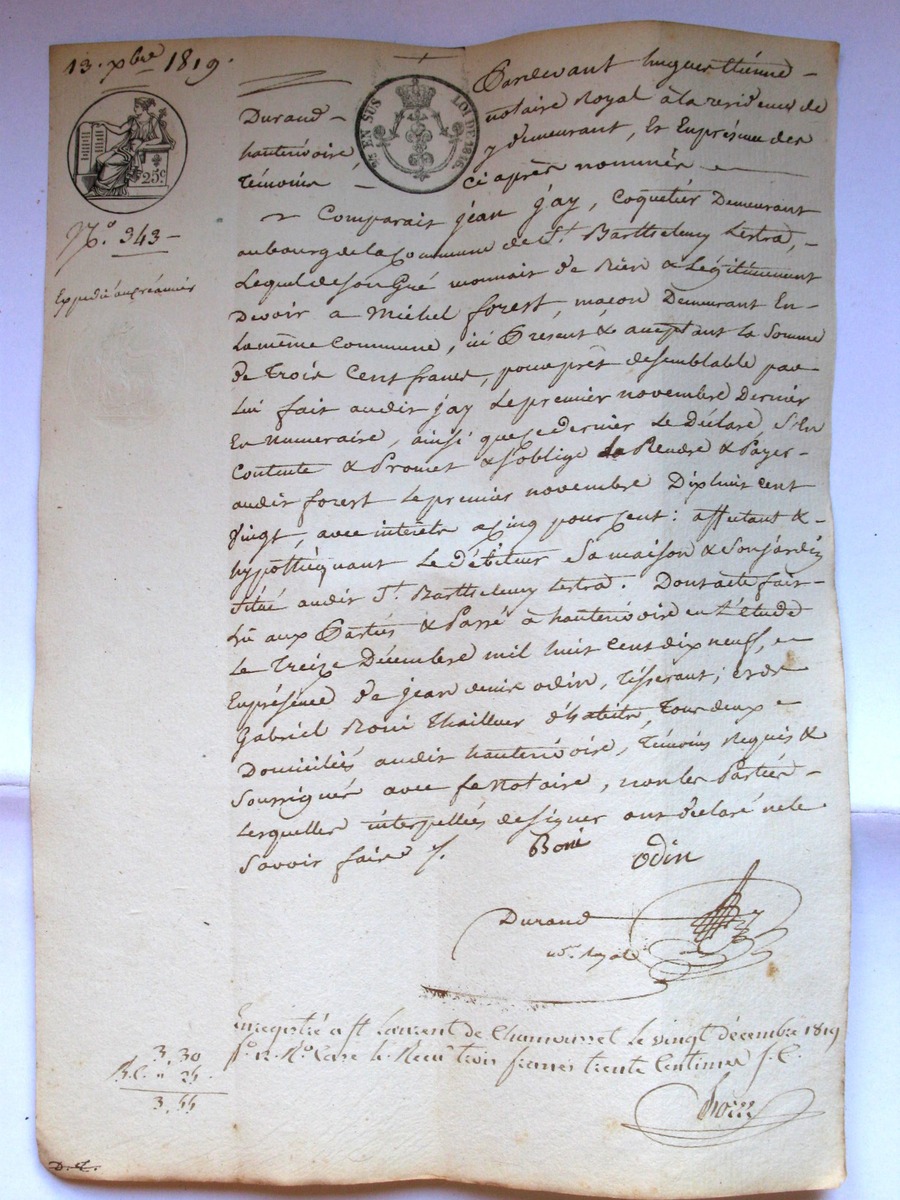 13. xbre 1819.
25c
N.º 343
Expédié au créancier
EN SUS LOI DE 1816.
Pardevant hugues Etienne
Durand notaire Royal à la residence de
hautervoire y demeurant, Et En présence des
témoins ci après nommés
Comparait jean jay, Coquetier Demeurant
au bourg de la Commune de St. Barthelemy Lestra,
Lequel de son Gré connait de Bien & Légitimement
Devoir a Michel forest, maçon Demeurant En
La même Commune, ici Present & acceptant la Somme
de Trois Cent francs, pour prêt de semblable par
Lui fait audit jay Le premier novembre Dernier
En Numeraire, ainsi que ce dernier Le Déclare, S'En
Contente & Promet & s'oblige de Rendre & Payer
audit forest Le premier novembre Dixhuit cent
Vingt, avec intérêts a Cinq pour Cent: affectant &
hypothéquant Le Débiteur Sa maison & Son jardin
Situé audit St. Barthelemy Lestra. Dont acte fait
Lu aux Parties & Passé à hautervoire en L'étude
Le Treize Décembre mil huit Cent dix neuf, en
Enprésence de jean denis odin, tisserant; et de
Gabriel Boni Thailleur d'habits, Tous deux
Domiciliés audit hautervoire, témoins Requis &
Soussignés avec le Notaire, non les Parties
Lesquelles interpellées de signer ont déclaré ne le
Savoir faire ./.
Boni odin
Durand
no.re Royal
Enregistré a St Laurent de Chamousset le vingt décembre 1819
fo. 12. Ro. Case 1e. Recu trois francs trente Centimes
3,30
3,55
D.L.